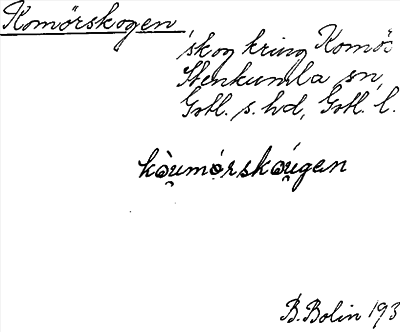 Komörskogen
skog kring Komör
Stenkumla sn,
Gotl. s. hd, Gotl. l.
kòu̯mórskóu̯gan
B. Bolin 193